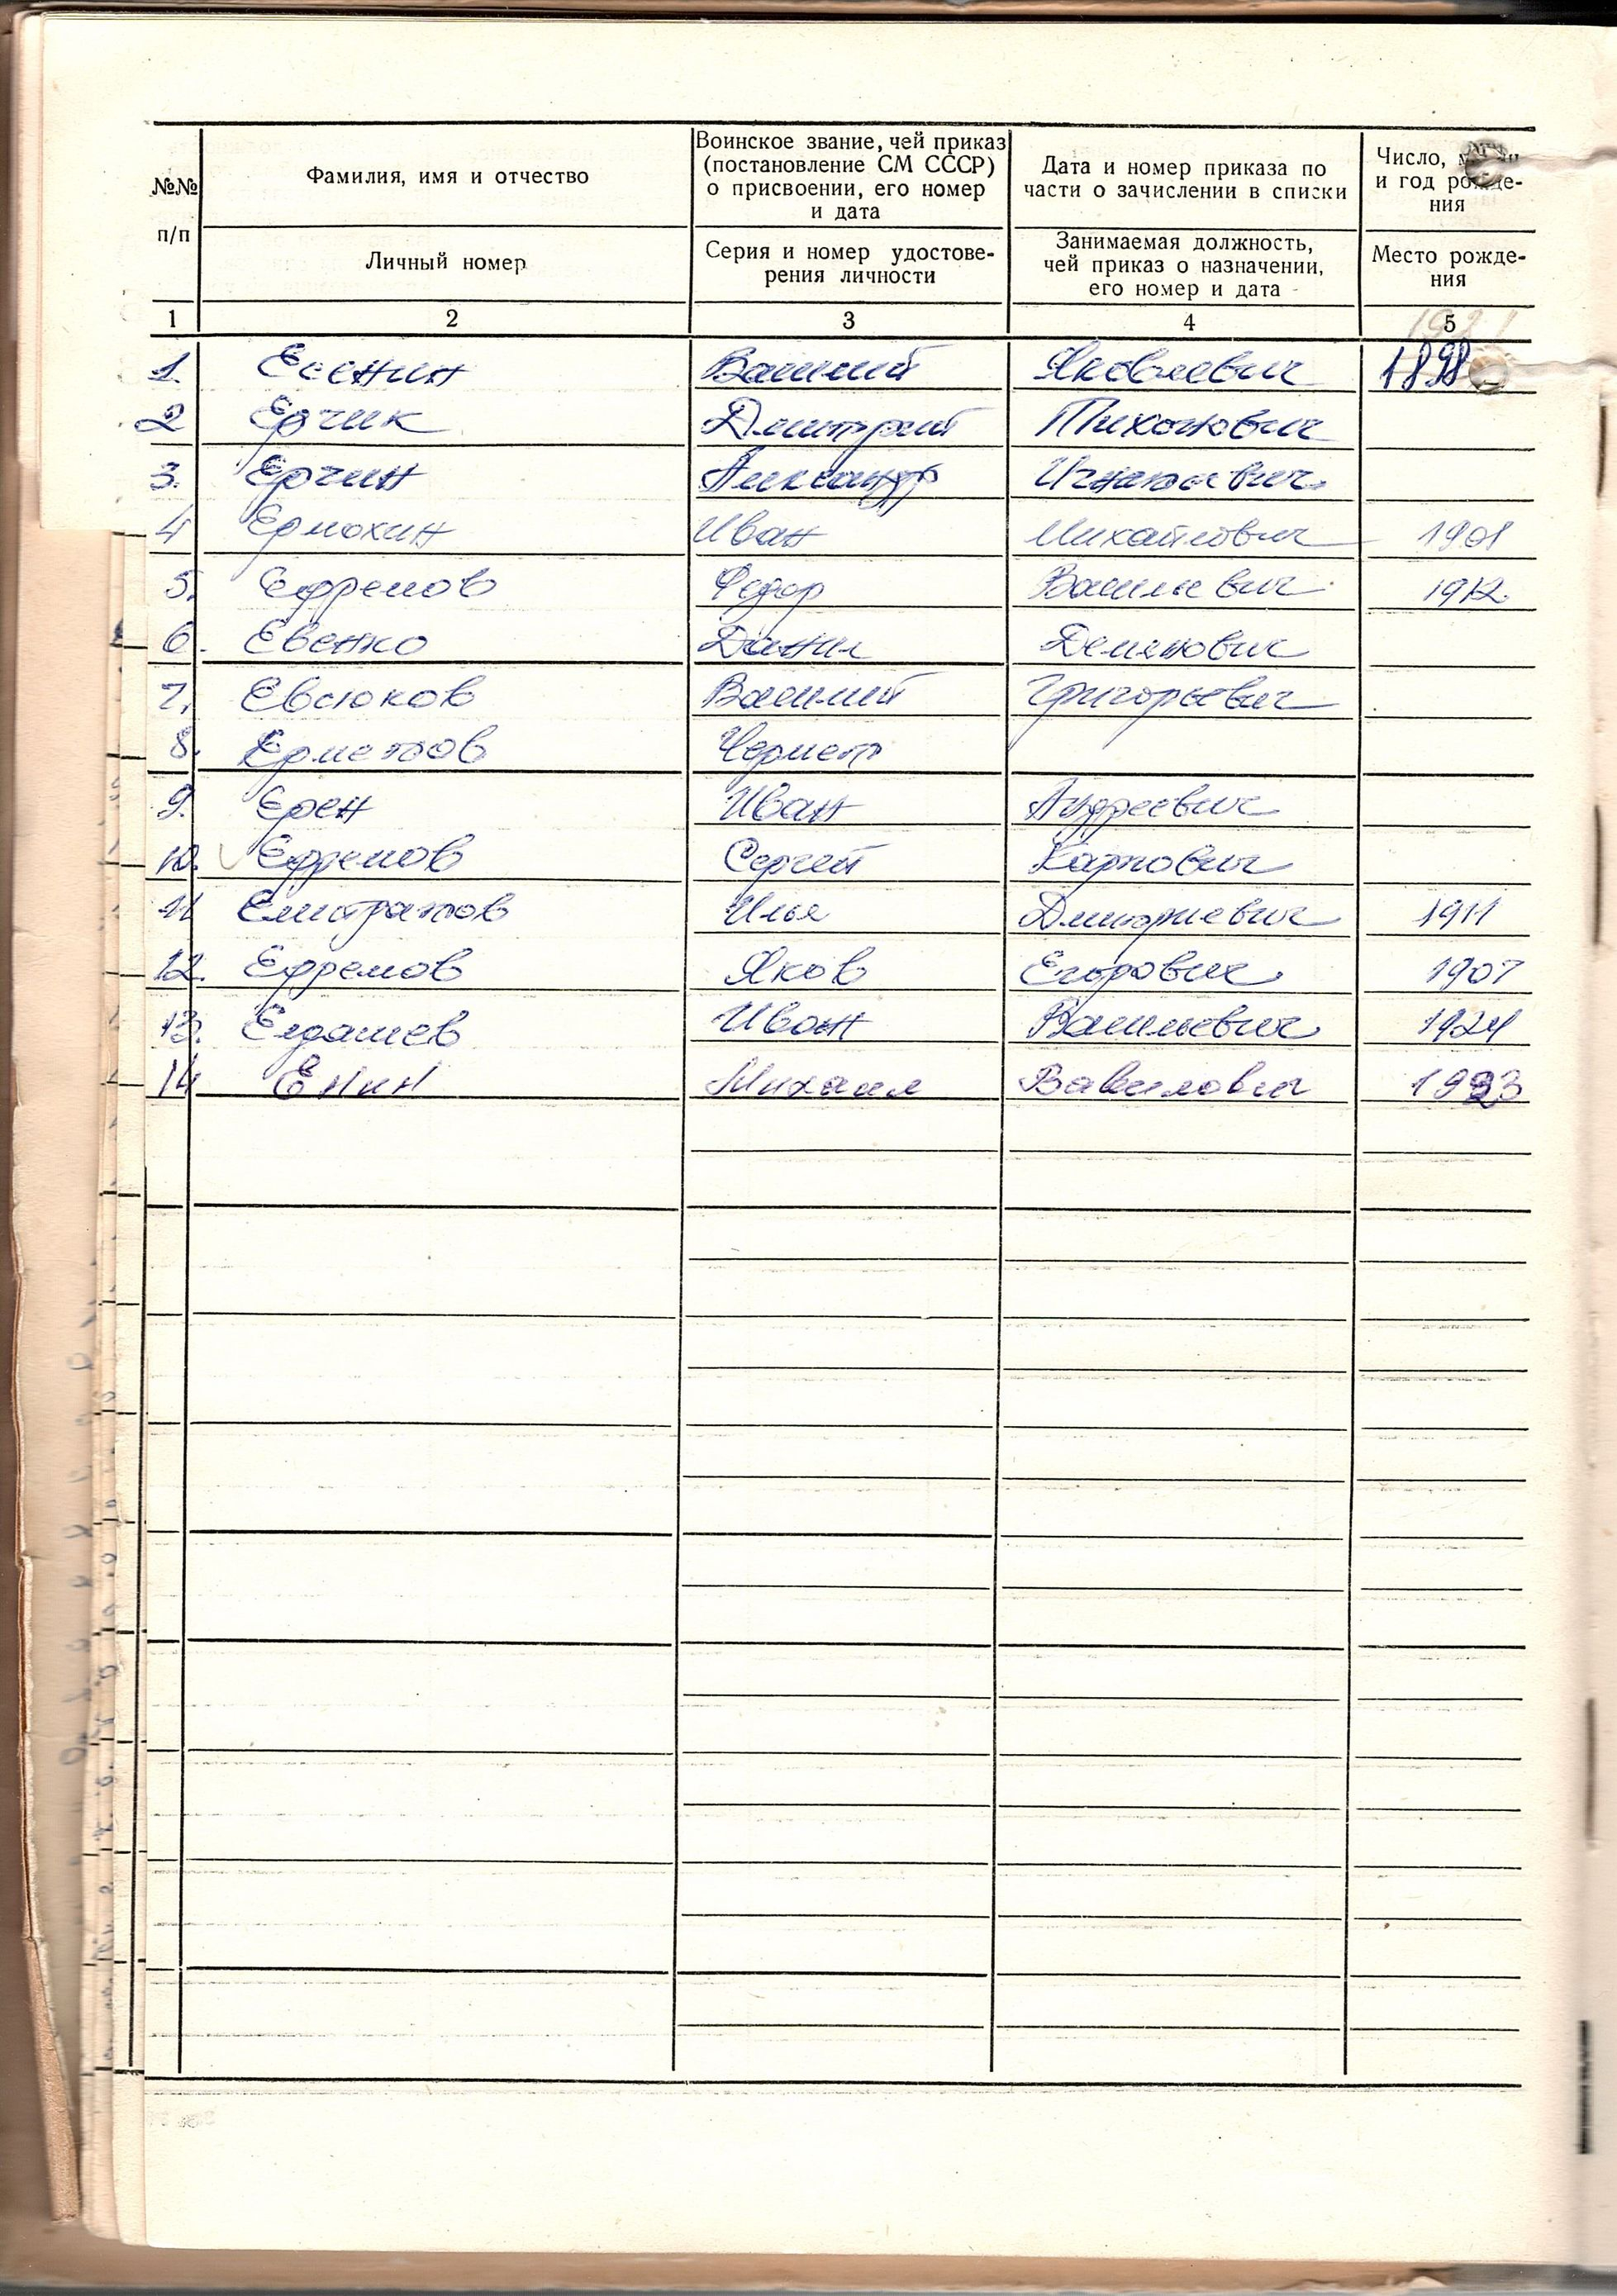 №№ п/п
Фамилия, имя и отчество
Личный номер
Воинское звание, чей приказ
(постановление СМ СССР)
о присвоении, его номер
и дата
Серия и номер удостове-
рения личности
Дата и номер приказа по
части о зачислении в списки
Занимаемая должность,
чей приказ о назначении,
его номер и дата
Число,
и год рожде-
ния
Место рожде-
ния
1 2 3 4 5
1921
1. Есенин Василий Яковлевич 1898
2 Ерчик Дмитрий Тихонович
3. Ерчин Александр Игнатьевич
4 Ермохин Иван Михайлович 1901
5. Ефремов Федор Васильевич 1912
6. Евенко Данил Демянович
7. Евсюков Василий Григорьевич
8. Ерметов Чермет
9. Ерен Иван Андреевич
10. Ефремов Сергей Карпович
11 Елистратов Илья Дмитриевич 1911
12. Ефремов Яков Егорович 1907
13. Елдашев Иван Васильевич 1924
14 Енин Михаил Вавилович 1923